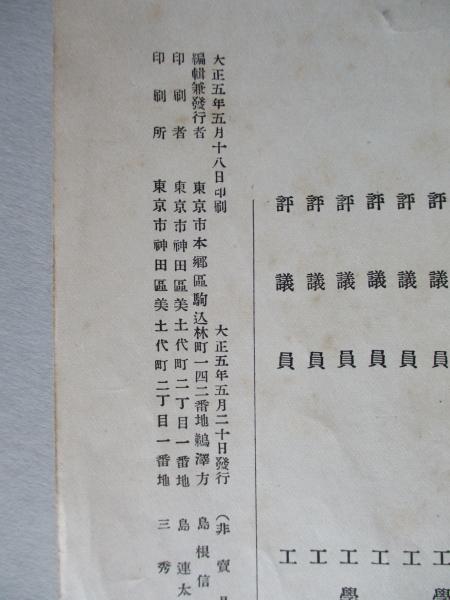 評議員 工學
評議員 工
評議員 工
評議員 工學
評議員 工
評議員 工
大正五年五月十八日印刷 大正五年五月二十日發行 (非賣
編輯兼發行者 東京市本鄉區駒込林町一四二番地鵜澤方 島根信
印刷者 東京市神田區美土代町二丁目一番地 島連太
印刷所 東京市神田區美土代町二丁目一番地 三秀